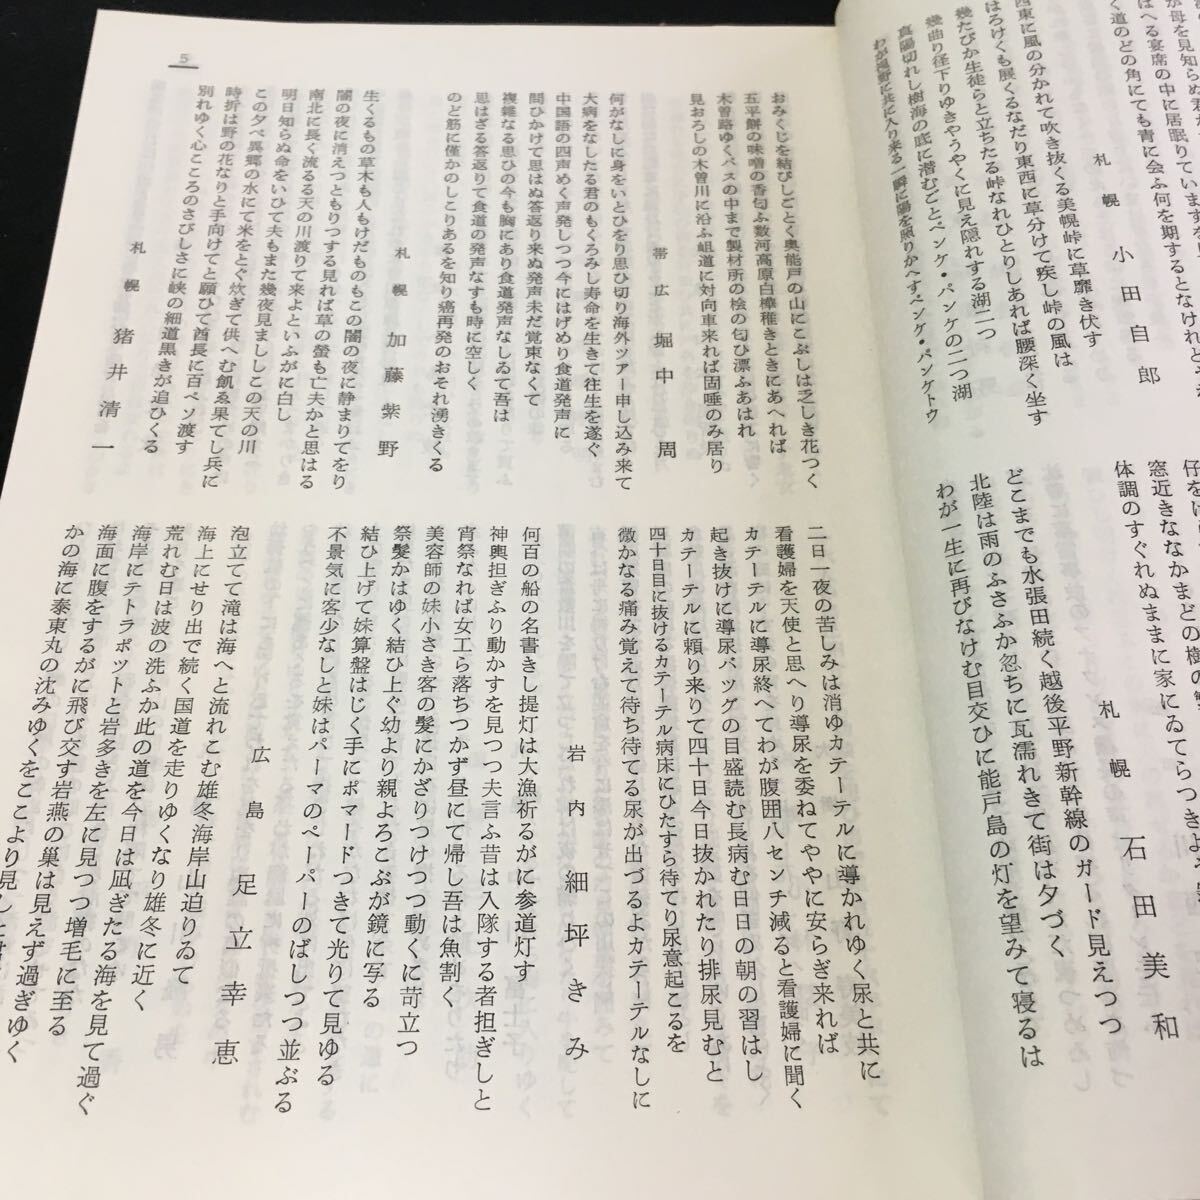 が母を見知らぬ君が
はへる宴席の中に居眠りていますを
く道のどの角にても青に会ふ何を期するとなけれど
札幌 小田自郎
西東に風の分かれて吹き抜くる美幌峠に草靡き伏す
はろけくも展くるなだり東西に草分けて疾し峠の風は
幾たびか生徒らと立ちたる峠なれひとりしあれば腰深く坐す
幾曲り径下りゆきやうやくに見え隠れする湖二つ
真陽切れし樹海の底に潜むごとペンケ・パンケの二つ湖
わが視野に共に入り来る一瞬に陽を照りかへすペンケ・パンケトウ
窓近きななかまどの樹の
体調のすぐれぬままに家にゐてらつきよ
札幌 石田美和
どこまでも水張田続く越後平野新幹線のガード見えつつ
北陸は雨のふさふか忽ちに瓦濡れきて街は夕づく
わが一生に再びなけむ目交ひに能戸島の灯を望みて寝るは
5
おみくじを結びしごとく奥能戸の山にこぶしは乏しき花つく
五平餅の味噌の香匂ふ数河高原白樺稚きときにあへれば
木曽路ゆくバスの中まで製材所の桧の匂ひ漂ふあはれ
見おろしの木曽川に沿ふ岨道に対向車来れば固唾のみ居り
帯広 堀中周
何がなしに身をいとひをり思ひ切り海外ツアー申し込み来て
大病をなしたる君のもくろみし寿命を生きて往生を遂ぐ
中国語の四声めく声発しつつ今にはげめり食道発声に
問ひかけて思はぬ答返り来ぬ発声未だ覚束なくて
複雑なる思ひの今も胸にあり食道発声なしゐて吾は
思はざる答返りて食道の発声なすも時に空しく
のど筋に僅かのしこりあるを知り癌再発のおそれ湧きくる
札幌 加藤紫野
生くるもの草木も人もけだものもこの闇の夜に静まりてをり
闇の夜に消えつともりつする見れば草の螢も亡夫かと思はる
南北に長く流るる天の川渡りて来よといふがに白し
明日知らぬ命をいひて夫もまた幾夜見ましこの天の川
この夕べ異郷の水にて米をとぐ炊ぎて供へむ飢ゑ果てし兵に
時折は野の花なりと手向けてと願ひて酋長に百ペソ渡す
別れゆく心こころのさびしさに峡の細道黒きが追ひくる
札幌 猪井清一
二日一夜の苦しみは消ゆカテーテルに導かれゆく尿と共に
看護婦を天使と思へり導尿を委ねてややに安らぎ来れば
カテーテルに導尿終へてわが腹囲八センチ減ると看護婦に聞く
起き抜けに導尿バッグの目盛読む長病む日日の朝の習はし
カテーテルに頼り来りて四十日今日抜かれたり排尿見むと
四十日目に抜けるカテーテル病床にひたすら待てり尿意起こるを
微かなる痛み覚えて待ち待てる尿が出づるよカテーテルなしに
岩内 細坪きみ
何百の船の名書きし提灯は大漁祈るがに参道灯す
神輿担ぎふり動かすを見つつ夫言ふ昔は入隊する者担ぎしと
宵祭なれば女工ら落ちつかず昼にて帰し吾は魚割く
美容師の妹小さき客の髪にかざりつけつつ動くに苛立つ
祭髪かはゆく結ひ上ぐ幼より親よろこぶが鏡に写る
結ひ上げて妹算盤はじく手にポマードつきて光りて見ゆる
不景気に客少なしと妹はパーマのペーパーのばしつつ並ぶる
広島 足立幸恵
泡立てて滝は海へと流れこむ雄冬海岸山迫りゐて
海上にせり出で続く国道を走りゆくなり雄冬に近く
荒れむ日は波の洗ふか此の道を今日は凪ぎたる海を見て過ぐ
海岸にテトラポットと岩多きを左に見つつ増毛に至る
海面に腹をするがに飛び交す岩燕の巣は見えず過ぎゆく
かの海に泰東丸の沈みゆくをここより見しと